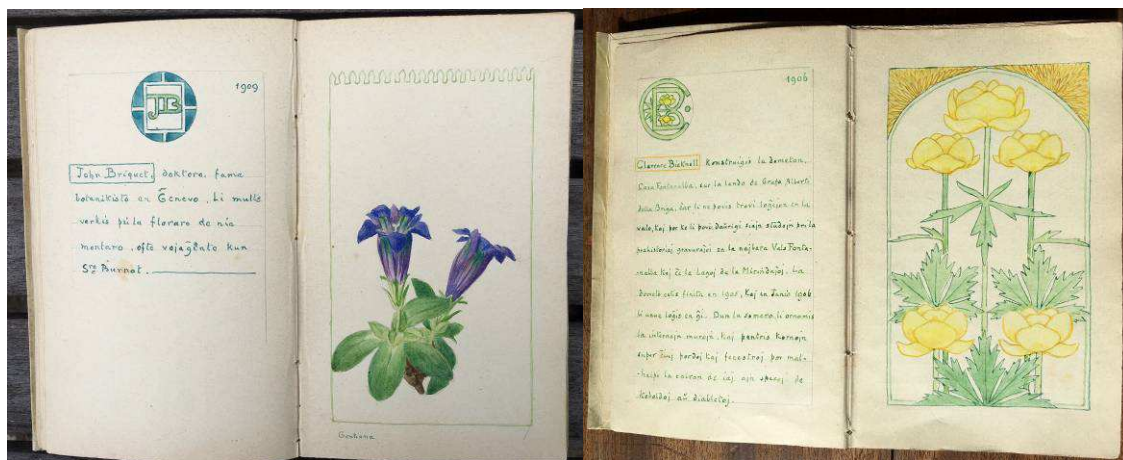 JB
1909
John Briquet, doktoro, fama
botanikisto en Ĝenevo. Li multe
verkis pri la floraro de nia
montaro, ofte vojaĝante kun
Sro Burnat.
Gentiana
CB
1906
Clarence Bicknell konstruigis la dometon,
Casa Fontanalba, sur la lando de Grafo Alberti
della Briga, ĉar li ne povis trovi loĝejon en la
valo, kaj por ke li povu daŭrigi siajn studojn pri la
prehistoriaj gravuraĵoj en la najbara Valo Fonta-
nalba kaj ĉe la Lagoj de la Mirindaĵoj. La
domo estis finita en 1905, kaj en Junio 1906
li unue loĝis en ĝi. Dum la somero, li ornamis
la internajn murojn, kaj pentris kornojn
super ĉiuj pordoj kaj fenestroj por mal-
-helpi la eniron de iaj ajn specoj de
koboldoj aŭ diabletoj.